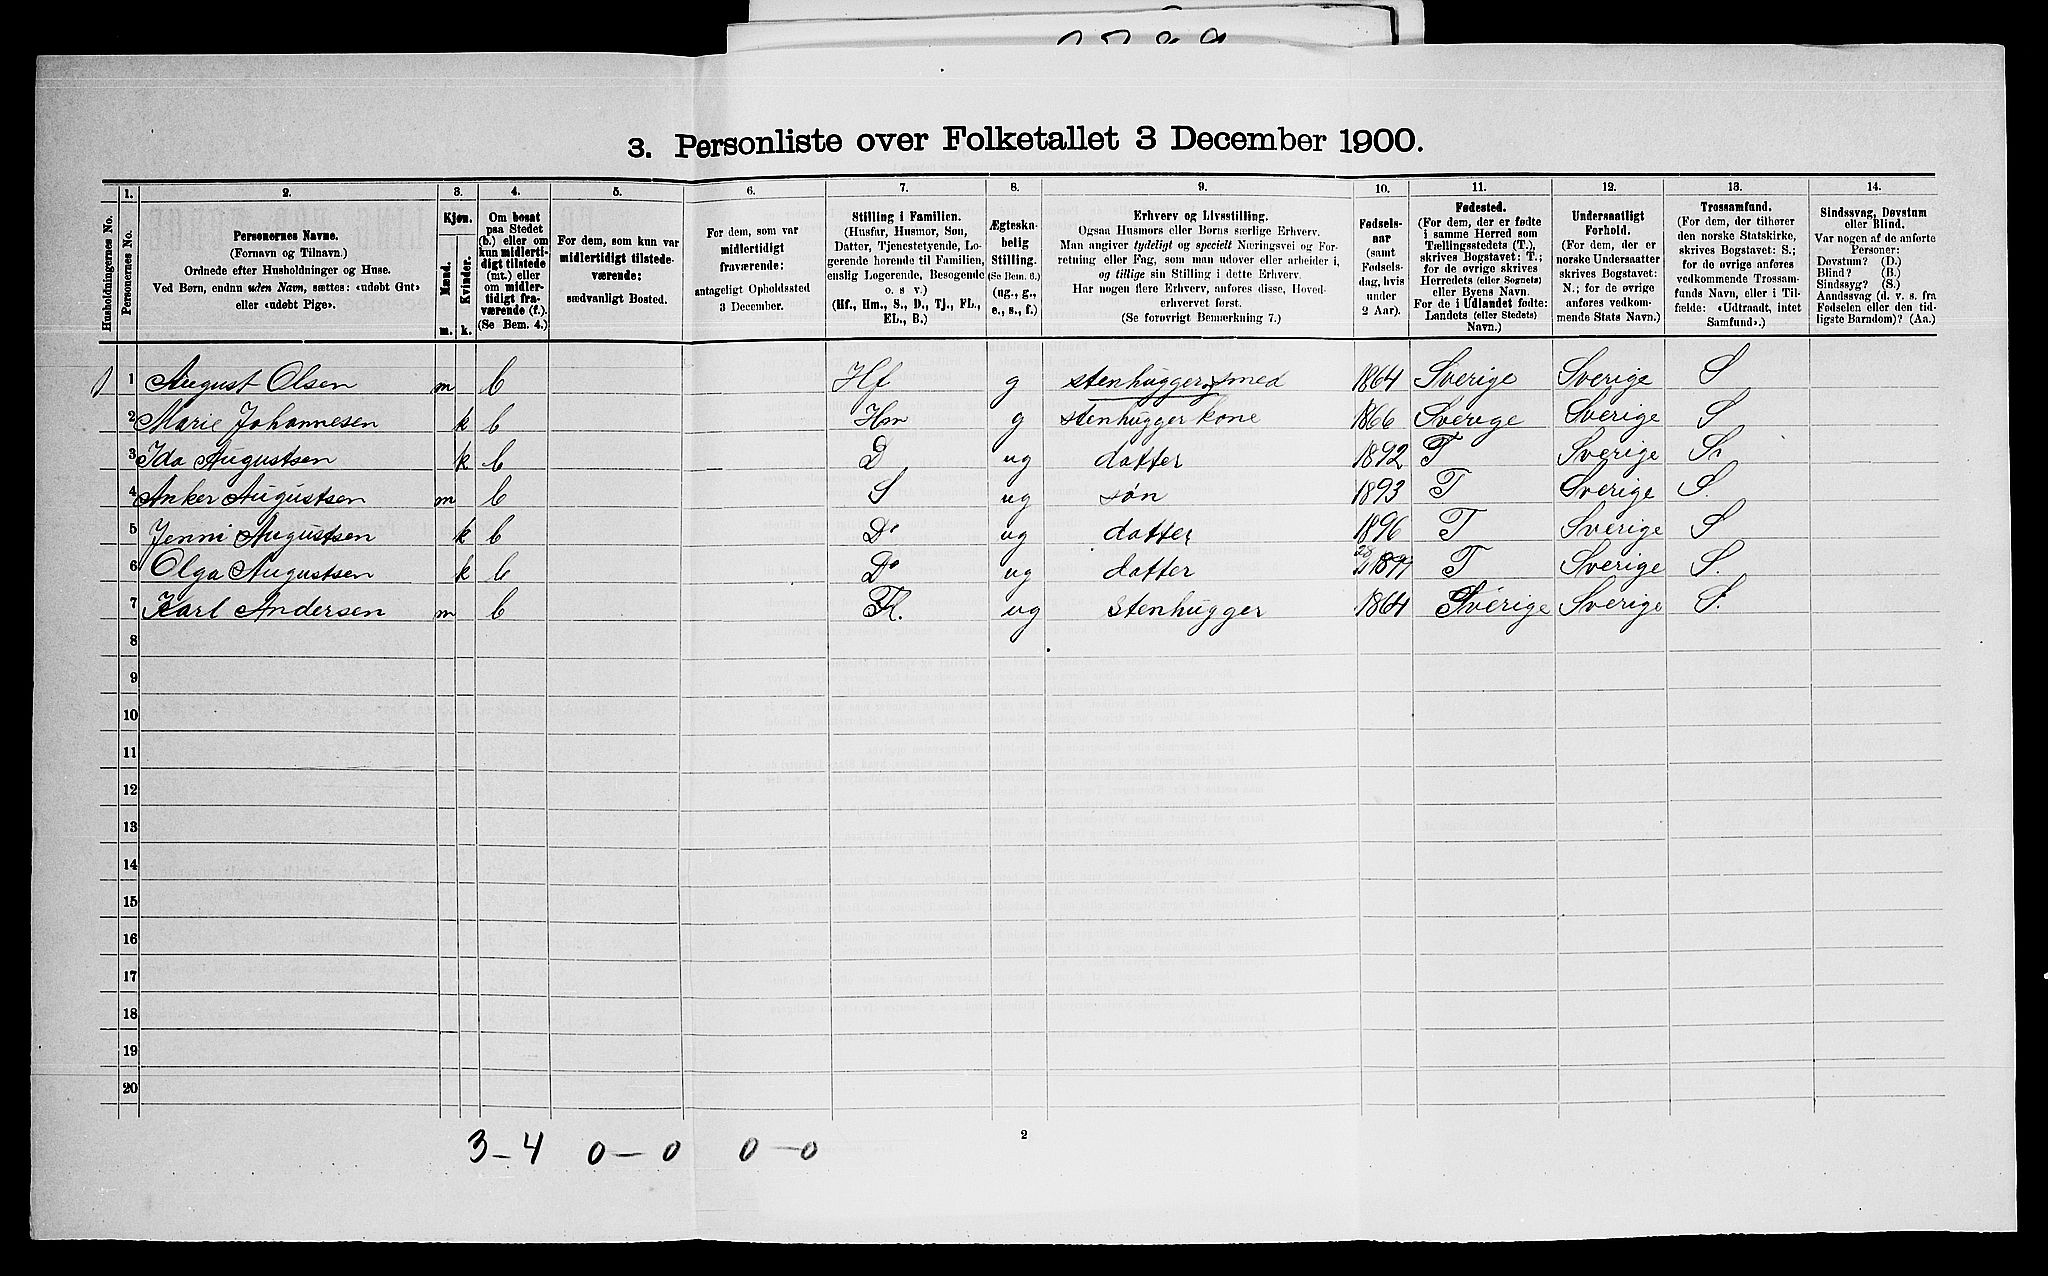 3. Personliste over Folketallet 3 December 1900.
1. 2. 3. 4. 5. 6. 7. 8. 9. 10. 11. 12. 13. 14.
Husholdningernes No.
Personernes No.
Personernes Navne.
(Fornavn og Tilnavn.)
Ordnede efter Husholdninger og Huse.
Ved Børn, endnu uden Navn, sættes: «udøbt Gut»
eller «udøbt Pige».
Kjøn.
Mænd.
Kvinder.
m. k.
Om bosat
paa Stedet
(b.) eller om
kun midlerti-
digt tilstede
(mt.) eller
om midler-
tidigt fra-
værende (f.).
(Se Bem. 4.)
For dem, som kun var
midlertidigt tilstede-
værende:
sædvanligt Bosted.
For dem, som var
midlertidigt
fraværende:
antageligt Opholdssted
3 December.
Stilling i Familien.
(Husfar, Husmor, Søn,
Datter, Tjenestetyende, Lo-
gerende hørende til Familien,
enslig Logerende, Besøgende
o. s v.)
(Hf., Hm., S., D., Tj., FL.,
EL., B.)
Ægteska-
belig
Stilling.
(Se Bem. 6.)
(ug., g.,
e., s., f.)
Erhverv og Livsstilling.
Ogsaa Husmors eller Børns særlige Erhverv.
Man angiver tydeligt og specielt Næringsvei og For-
retning eller Fag, som man udover eller arbeider i,
og tillige sin Stilling i dette Erhverv.
Har nogen flere Erhverv, anføres disse, Hoved-
erhvervet først.
(Se forøvrigt Bemærkning 7.)
Fødsels-
aar
(samt
Fødsels-
dag, hvis
under
2 Aar).
Fødested.
(For dem, der er fødte
i samme Herred som
Tællingsstedets (T.),
skrives Bogstavet: T.;
for de øvrige skrives
Herredets (eller Sognets)
eller Byens Navn.
For de i Udlandet fødte:
Landets (eller Stedets)
Navn.)
Undersaatligt
Forhold.
(For dem, der er
norske Undersaatter
skrives Bogstavet:
N.; for de øvrige
anføres vedkom-
mende Stats Navn.)
Trossamfund.
(For dem, der tilhører
den norske Statskirke,
skrives Bogstavet: S.;
for de øvrige anføres
vedkommende Trossam-
funds Navn, eller i Til-
fælde: «Udtraadt, intet
Samfund».)
Sindssvag, Døvstum
eller Blind.
Var nogen af de anførte
Personer:
Døvstum? (D.)
Blind? (B.)
Sindssyg? (S.)
Aandssvag (d. v. s. fra
Fødselen eller den tid-
ligste Barndom)? (Aa.)
1 August Olsen m b Hf g stenhugger smed 1864 Sverige Sverige S
2 Marie Johannesen k b Hm g stenhugger kone 1866 Sverige Sverige S
3 Ida Augustsen k b D ug datter 1892 T Sverige S.
4 Anker Augustsen m b S ug søn 1893 T Sverige S.
5 Jenni Augustsen k b D ug datter 1896 T Sverige S
6 Olga Augustsen k b D ug datter T Sverige S.
7 Karl Andersen m b ug stenhugger 1864 Sverige Sverige S.
8
9
10
11
12
13
14
15
16
17
18
19
20
3-4 0-0 0-0
2